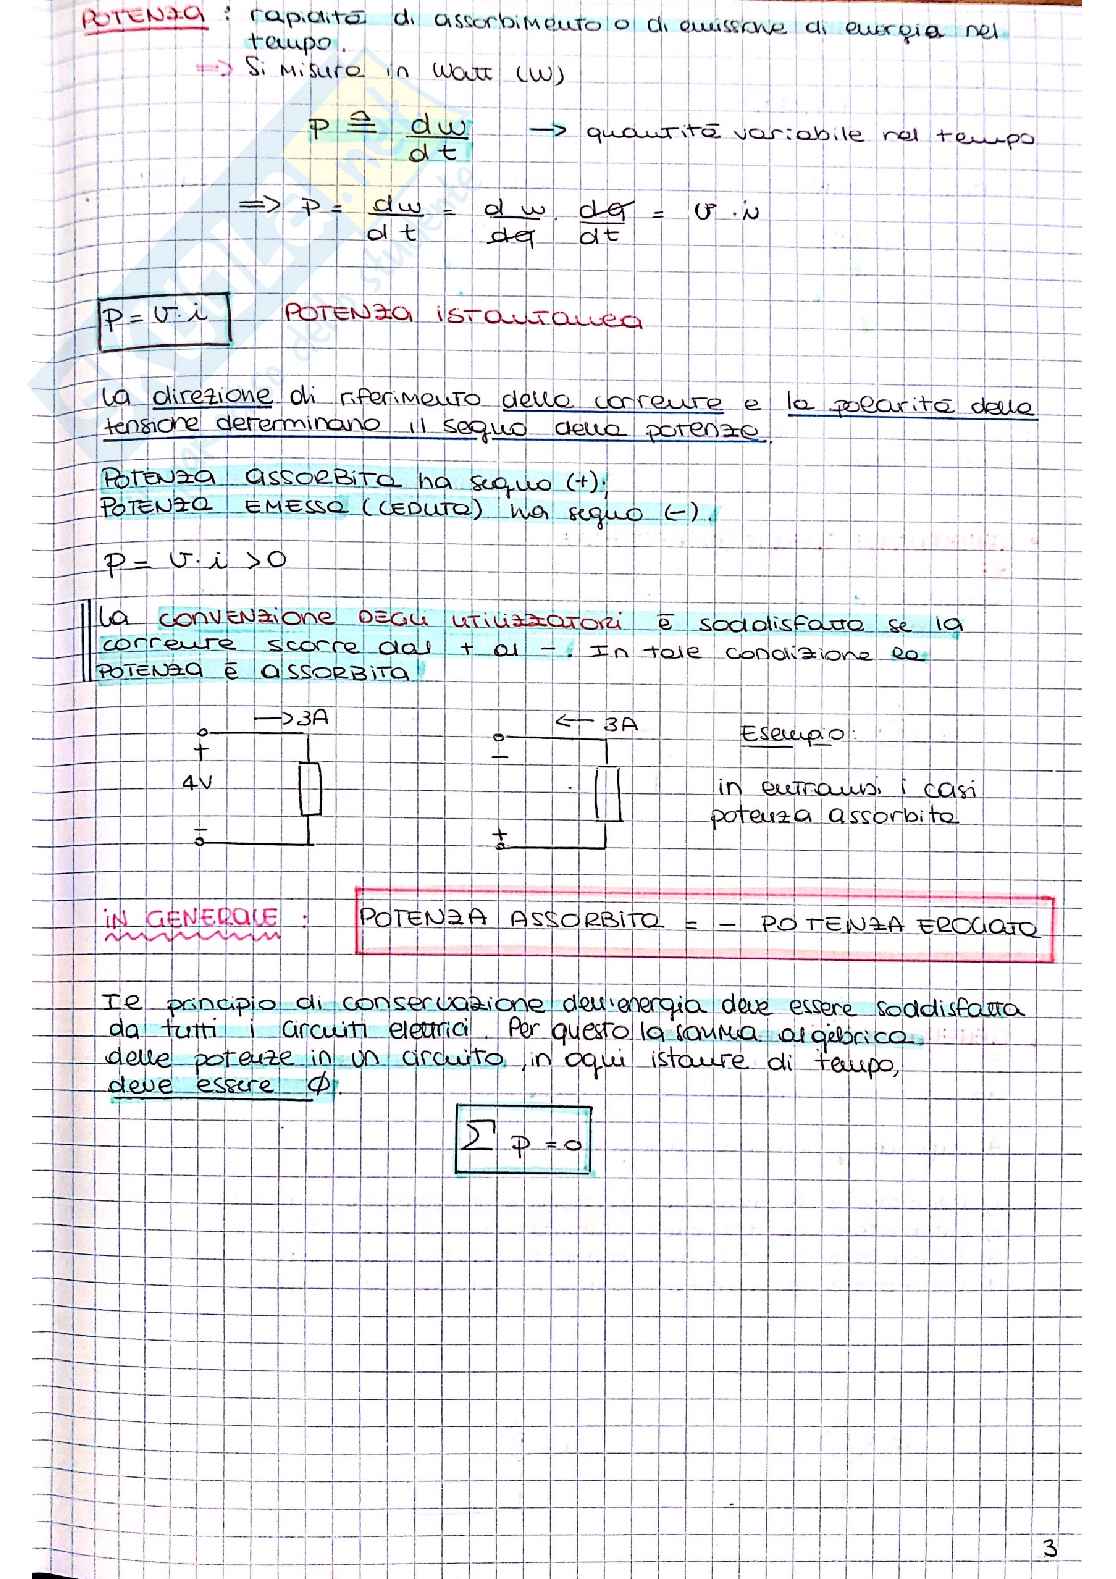 POTENZA : rapidità di assorbimento o di emissione di energia nel
tempo.
=> Si misura in Watt (W)
p ≜ dw/dt -> quantità variabile nel tempo
=> p = dw/dt = dw/dq · dq/dt = v · i
p = v · i POTENZA istantanea
La direzione di riferimento della corrente e la polarità della
tensione determinano il segno della potenza.
POTENZA ASSORBITA ha segno (+);
POTENZA EMESSA (CEDUTA) ha segno (-).
p = v · i > 0
La CONVENZIONE DEGLI UTILIZZATORI è soddisfatta se la
corrente scorre dal + al -. In tale condizione la
POTENZA è ASSORBITA
-> 3A
+
4V
-
<- 3A
-
+
Esempio:
in entrambi i casi
potenza assorbita
IN GENERALE : POTENZA ASSORBITA = - POTENZA EROGATA
Il principio di conservazione dell'energia deve essere soddisfatta
da tutti i circuiti elettrici. Per questo la somma algebrica
delle potenze in un circuito, in ogni istante di tempo,
deve essere Ø.
Σ p = 0
3